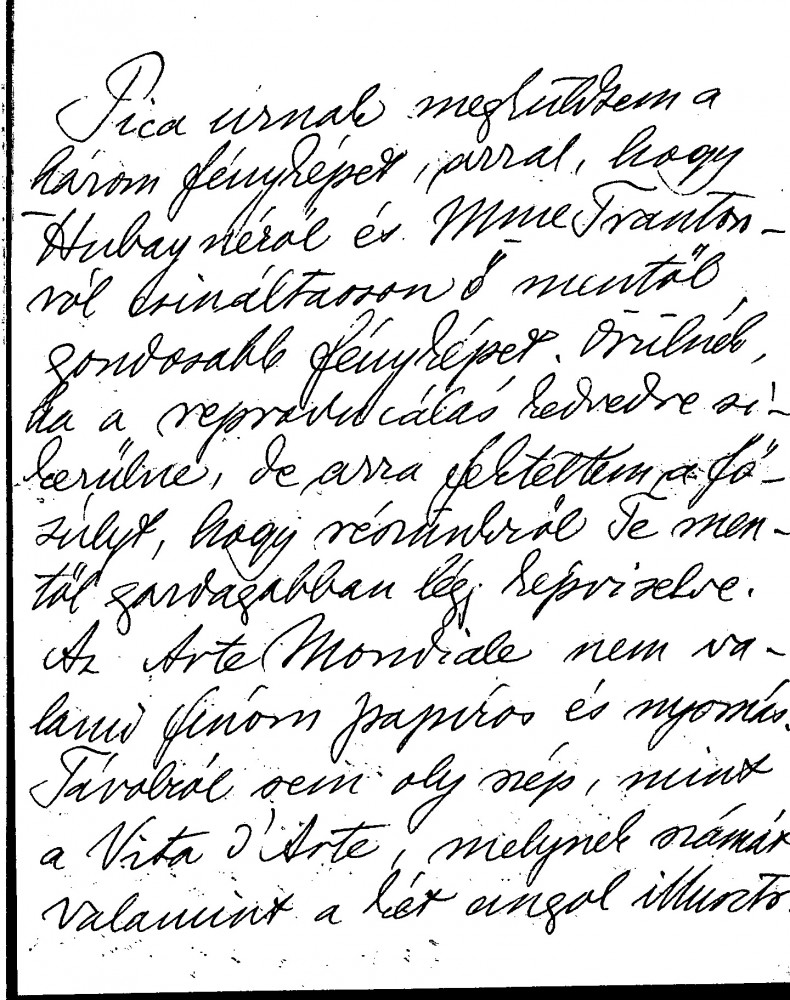 Pica urnak megküldtem a
három fényképet, azzal, hogy
Hubaynéról és Mme Tranton-
ról csináltasson ő mentől
gondosabb fényképet. Örülnék,
ha a reproducálás kedvedre si-
kerülne, de arra fektettem a fő-
súlyt, hogy részünkről Te men-
től gazdagabban légy képviselve.
Az Arte Mondiale nem va-
lami finom papíros és nyomás.
Távolról sem oly szép, mint
a Vita d'Arte, melynek számát
valamint a két angol illusztr.